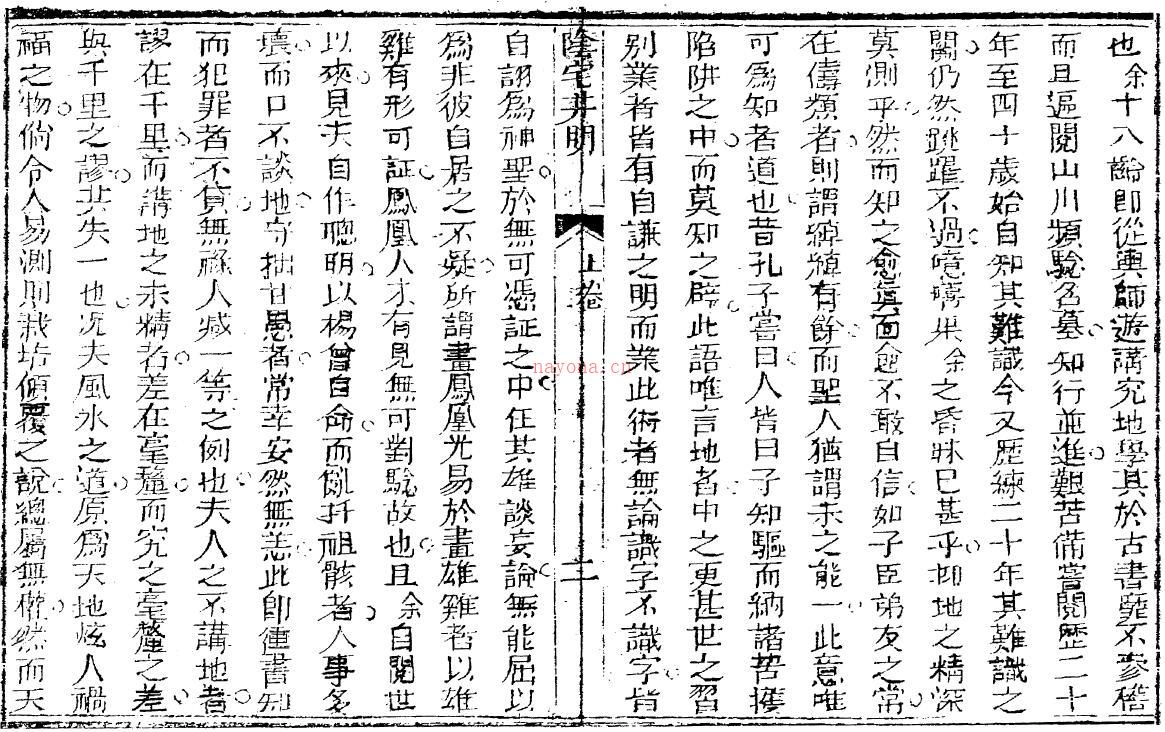 也余十八齡即從輿師遊講究地學其於古書靡不參稽
而且遍閱山川頻騐名墓知行並進艱苦備嘗閱歷二十
年至四十歲始自知其難識今又歷練二十年其難識之
關仍然跳躍不過噫嘻果余之昏昧已甚乎抑地之精深
莫測乎然而知之愈眞而愈不敢自信如子臣弟友之常
在儔類者則謂綽綽有餘而聖人猶謂未之能一此意唯
可爲知者道也昔孔子嘗曰人皆曰予知驅而納諸罟擭
陷阱之中而莫知之辟此語唯言地者中之更甚世之習
別業者皆有自謙之明而業此術者無論識字不識字皆
陰宅井明
上卷
二
自詡爲神聖於無可憑証之中任其雄談妄論無能屈以
爲非彼自居之不疑所謂畫鳳凰光易於畫雄雞者以雄
雞有形可証鳳凰人才有見無可對騐故也且余自閱世
以來見夫自作聰明以楊曾自命而亂扦祖骸者人事多
壞而口不談地守拙甘愚者常幸安然無恙此即律書知
而犯罪者不貸無祿人減一等之例也夫人之不講地者
謬在千里而講地之未精者差在毫釐而究之毫釐之差
與千里之謬其失一也况夫風水之道原爲天地炫人禍
福之物倘令人易測則栽培傾覆之說總屬無權然而天
nayona.cn